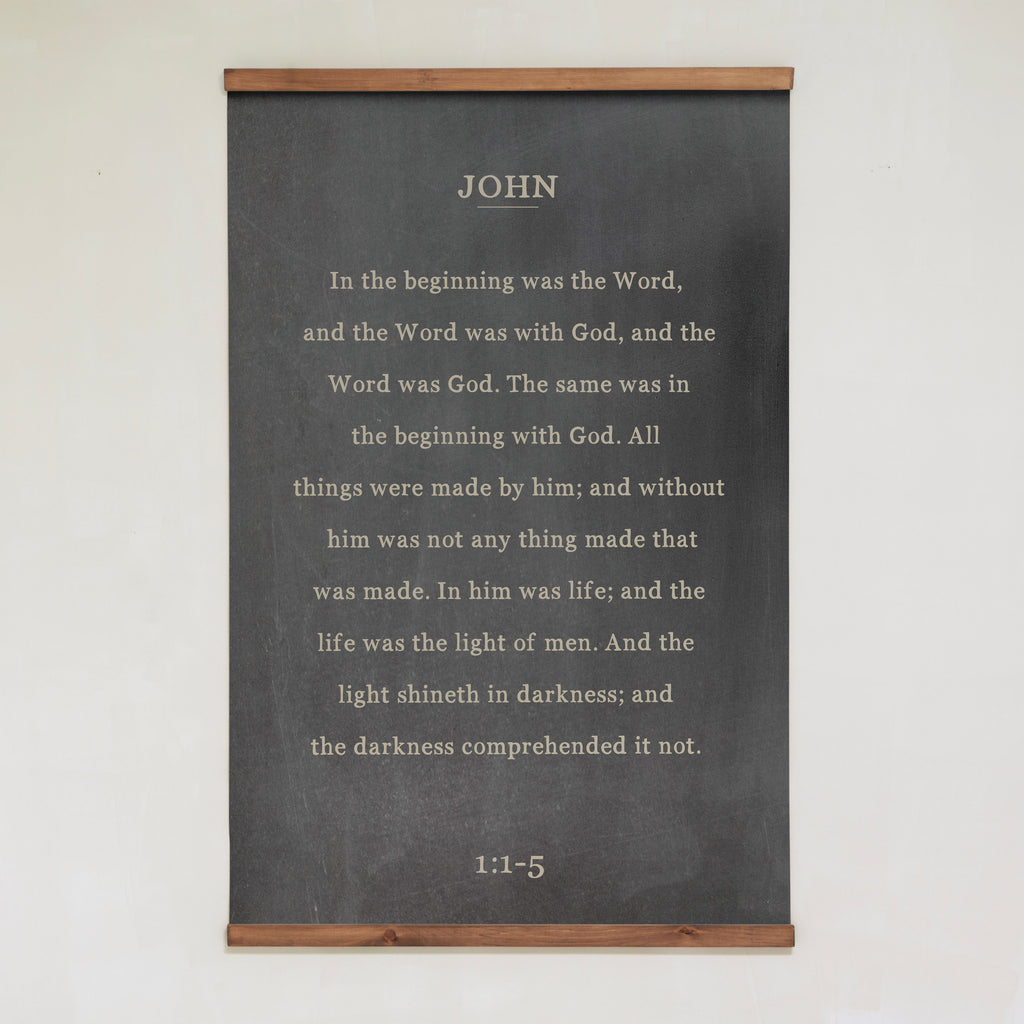 JOHN
In the beginning was the Word,
and the Word was with God, and the
Word was God. The same was in
the beginning with God. All
things were made by him; and without
him was not any thing made that
was made. In him was life; and the
life was the light of men. And the
light shineth in darkness; and
the darkness comprehended it not.
1:1-5